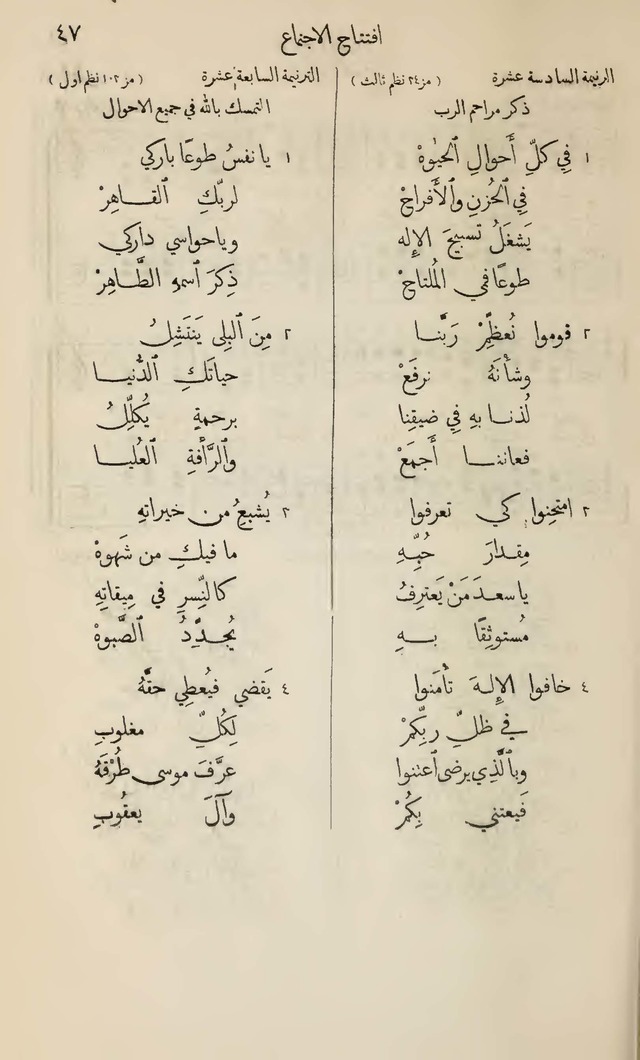 افتتاح الاجتماع ٤٧
الترنيمة السادسة عشرة ( مز ٣٤ نظم ثالث )
ذكر مراحم الرب
١ فِي كلِّ أَحوالِ ٱلحَيٰوةْ
فِي ٱلحُزنِ وٱلأَفراحْ
يَشغَلُ تسبيحَ الإِله
طوعًا فمي المُلتاحْ
٢ قوموا نُعظِّمْ رَبَّنا
وشأْنَهُ نرفَعْ
لُذنا بهِ فِي ضيقِنا
فعاننا أَجمَعْ
٣ امتحِنوا كي تعرفوا
مِقدارَ حُبِّهِ
ياسعدَ مَنْ يَعترِفُ
مُستوثِقًا بهِ
٤ خافوا الإِلهَ تأْمَنوا
في ظلِّ ربِّكُمْ
وبٱلَّذِي يرضى ٱعتنوا
فيعتني بِكُمْ
الترنيمة السابعة عشرة ( مز ١٠٣ نظم اول )
التمسك بالله في جميع الاحوال
١ يا نفسُ طوعًا باركي
لربِّكِ ٱلقاهِرْ
وياحواسي داركي
ذِكرَ ٱسمهِ الطَّاهِرْ
٢ مِنَ ٱلبِلى يَنتَشِلُ
حياتَكِ ٱلدُّنيا
برحمةٍ يُكلِّلُ
وٱلرَّأفةِ ٱلعُليا
٣ يُشبعُ من خيراتهِ
ما فيكِ من شَهوهْ
كالنِّسرِ في مِيقاتِهِ
يُجدِّدُ ٱلصَّبوهْ
٤ يَقضي فيُعطِي حقَّهُ
لِكُلِّ مغلوبِ
عرَّفَ موسى طُرْقَهُ
وآلَ يعقوبِ